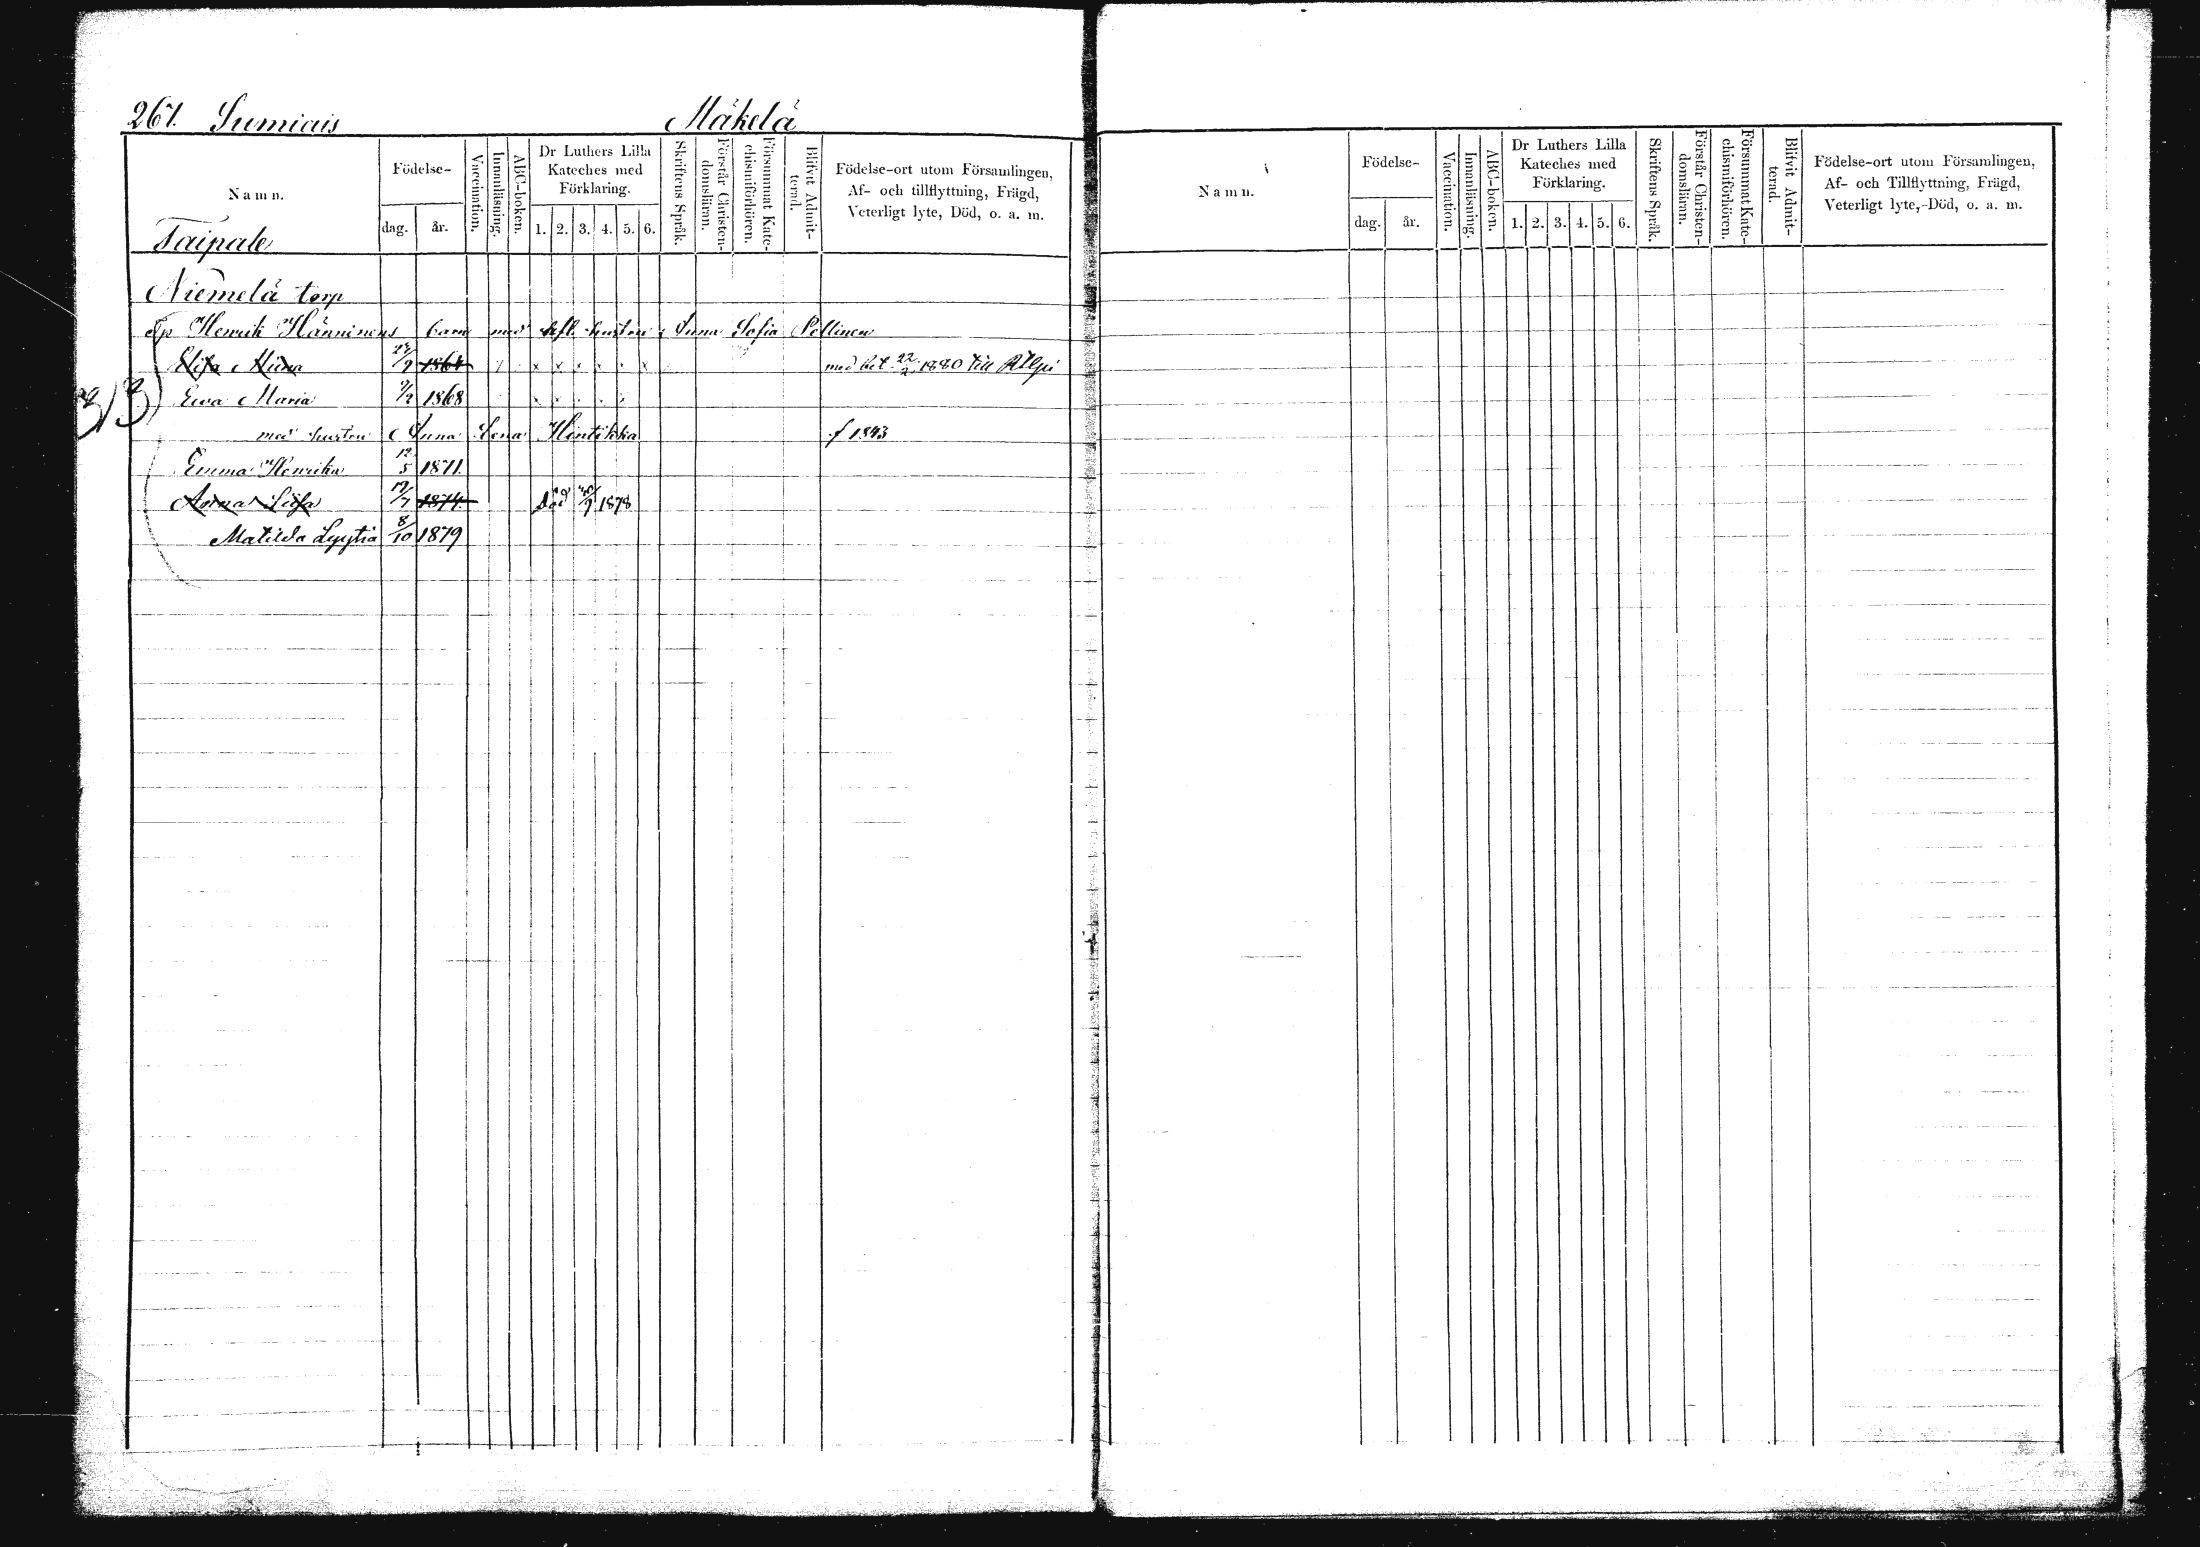 267. Sumiais Mäkelä
Namn. Födelse- dag. år. Vaccination. Innanläsning. ABC-boken. Dr Luthers Lilla Kateches med Förklaring. 1. 2. 3. 4. 5. 6. Skriftens Språk. Förstår Christen-domsläran. Försummat Kate-chismiförhören. Blifvit Admit-terad. Födelse-ort utom Församlingen, Af- och tillflyttning, Frägd, Veterligt lyte, Död, o. a. m.
Taipale
Niemelä torp
Henrik Hänninens barn med afl. hustru Anna Sofia Pellinen
Elisa Miina 1864 x x x x x x med bet. 22/2 1880 till
Ewa Maria 1868 x x x x x
med hustru Anna Lena Hintikka f 1843
Emma Henrika 12/5 1871
Anna Liisa 1874 död 1878
Matilda Lyytia 8/10 1879
3/3
Namn. Födelse- dag. år. Vaccination. Innanläsning. ABC-boken. Dr Luthers Lilla Kateches med Förklaring. 1. 2. 3. 4. 5. 6. Skriftens Språk. Förstår Christen-domsläran. Försummat Kate-chismiförhören. Blifvit Admit-terad. Födelse-ort utom Församlingen, Af- och Tillflyttning, Frägd, Veterligt lyte, Död, o. a. m.